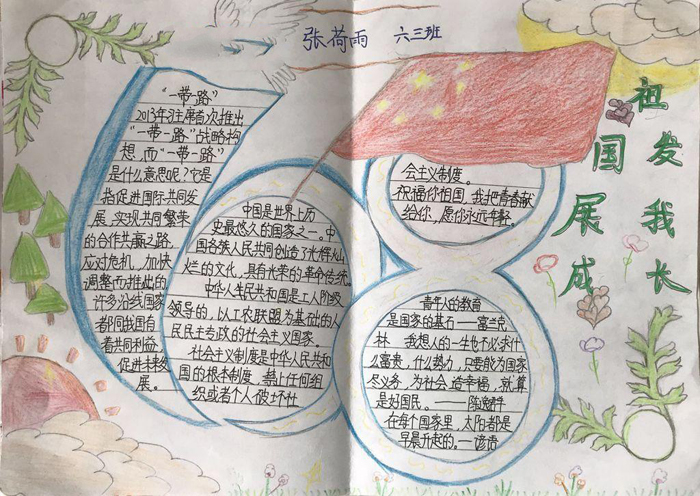 张荷雨 六三班
祖国发展我成长
“一带一路”
2013年习主席首次推出
“一带一路”战略构
想，而“一带一路”
是什么意思呢？它是
指促进国际共同发
展，实现共同繁荣
的合作共赢之路，
应对危机，加快
调整而推出的
许多沿线国家
都同我国有
着共同利益。
促进未来发
展。
中国是世界上历
史最悠久的国家之一。中
国各族人民共同创造了光辉灿
烂的文化，具有光荣的革命传统。
中华人民共和国是工人阶级
领导的，以工农联盟为基础的人
民民主专政的社会主义国家。
社会主义制度是中华人民共和
国的根本制度。禁止任何组
织或者个人破坏社
会主义制度。
祝福你祖国，我把青春献
给你，愿你永远年轻。
青年人的教育
是国家的基石——富兰克
林 我想人的一生也不必求什
么富贵，什么势力，只要能为国家
尽义务，为社会造幸福，就算
是好国民。——陶逸群
在每个国家里，太阳都是
早晨升起的。—谚语